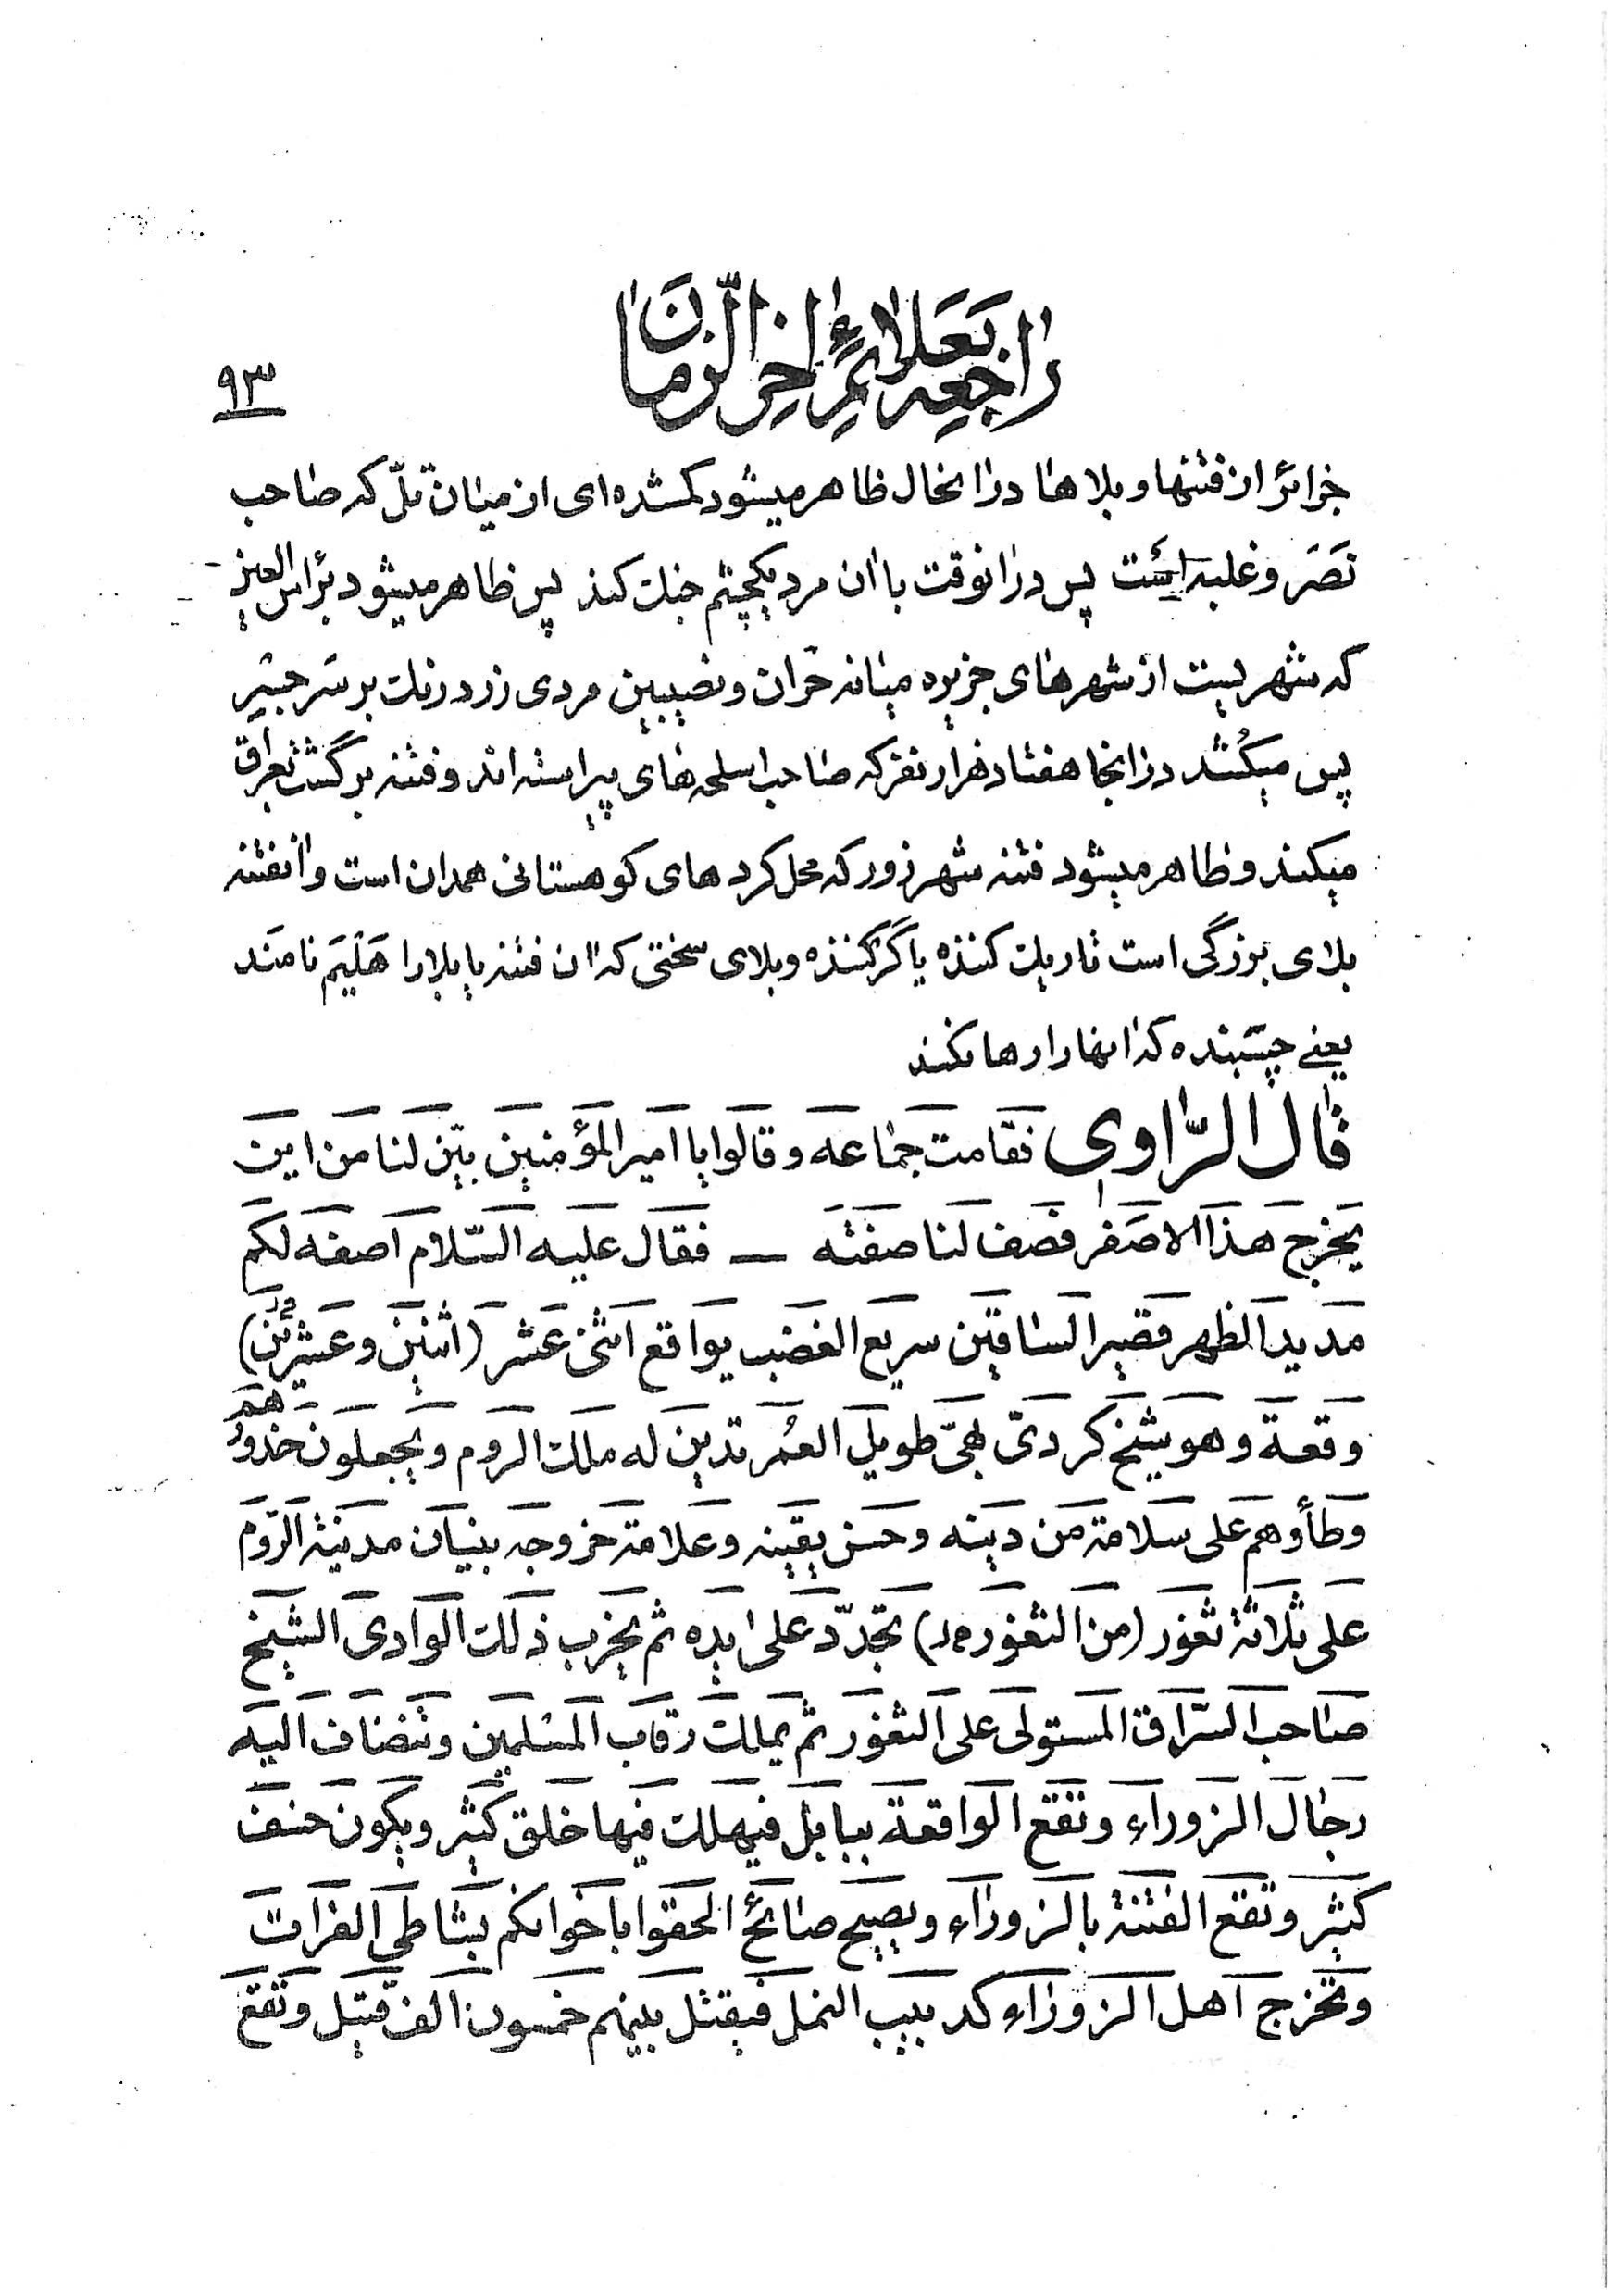 راجعه بعلائم اخر الزمان
۹۳
جزائر از فتنها و بلاها در انحال ظاهر میشود گمشده ای از میان تلّ که صاحب
نصر و غلبه است پس در انوقت با ان مرد یکچشم جنک کند پس ظاهر میشود برأس العین
که شهریست از شهرهای جزیره میانه حران و نصیبین مردی زرد رنک بر سر جسر
پس میکُشد در انجا هفتاد هزار نفر که صاحب اسلحه های پیراسته اند و فتنه برگشت بعراق
میکند و ظاهر میشود فتنه شهر زور که محل کردهای کوهستانی همدان است و انفتنه
بلای بزرگی است تاریک کننده یا کر کننده و بلای سختی که ان فتنه یا بلا را هَلْیَم نامند
یعنی چسبنده که انها را رها نکند
قال الرّاوی فقامت جماعه و قالوا یا امیر المؤمنین بیّن لنا من این
یخرج هذا الاصفر فصف لنا صفته ــ فقال علیه السّلام اصفه لکم
مدید الظهر قصیر الساقین سریع الغضب یواقع اثنی عشر (اثنین و عشرین)
وقعة و هو شیخ کردیّ بهیّ طویل العُمر تدین له ملک الروم و یجعلون خدودهم
وطأوهم علی سلامة من دینه و حسن یقینه و علامة خروجه بنیان مدینة الرّوم
علی ثلاثة ثغور (من الثغور) تجدّد علی یده ثم یخرب ذلک الوادی الشیخ
صاحب السّراق المستولی علی الثغور ثم یملک رقاب المسلمین و تنضاف الیه
رجال الزوراء و تقع الواقعة ببابل فیهلک فیها خلق کثیر و یکون خسف
کثیر و تقع الفتنة بالزوراء و یصیح صائح الحقوا باخوانکم بشاطی الفرات
و تخرج اهل الزوراء کدبیب النمل فیقتل بینهم خمسون الف قتیل و تقع